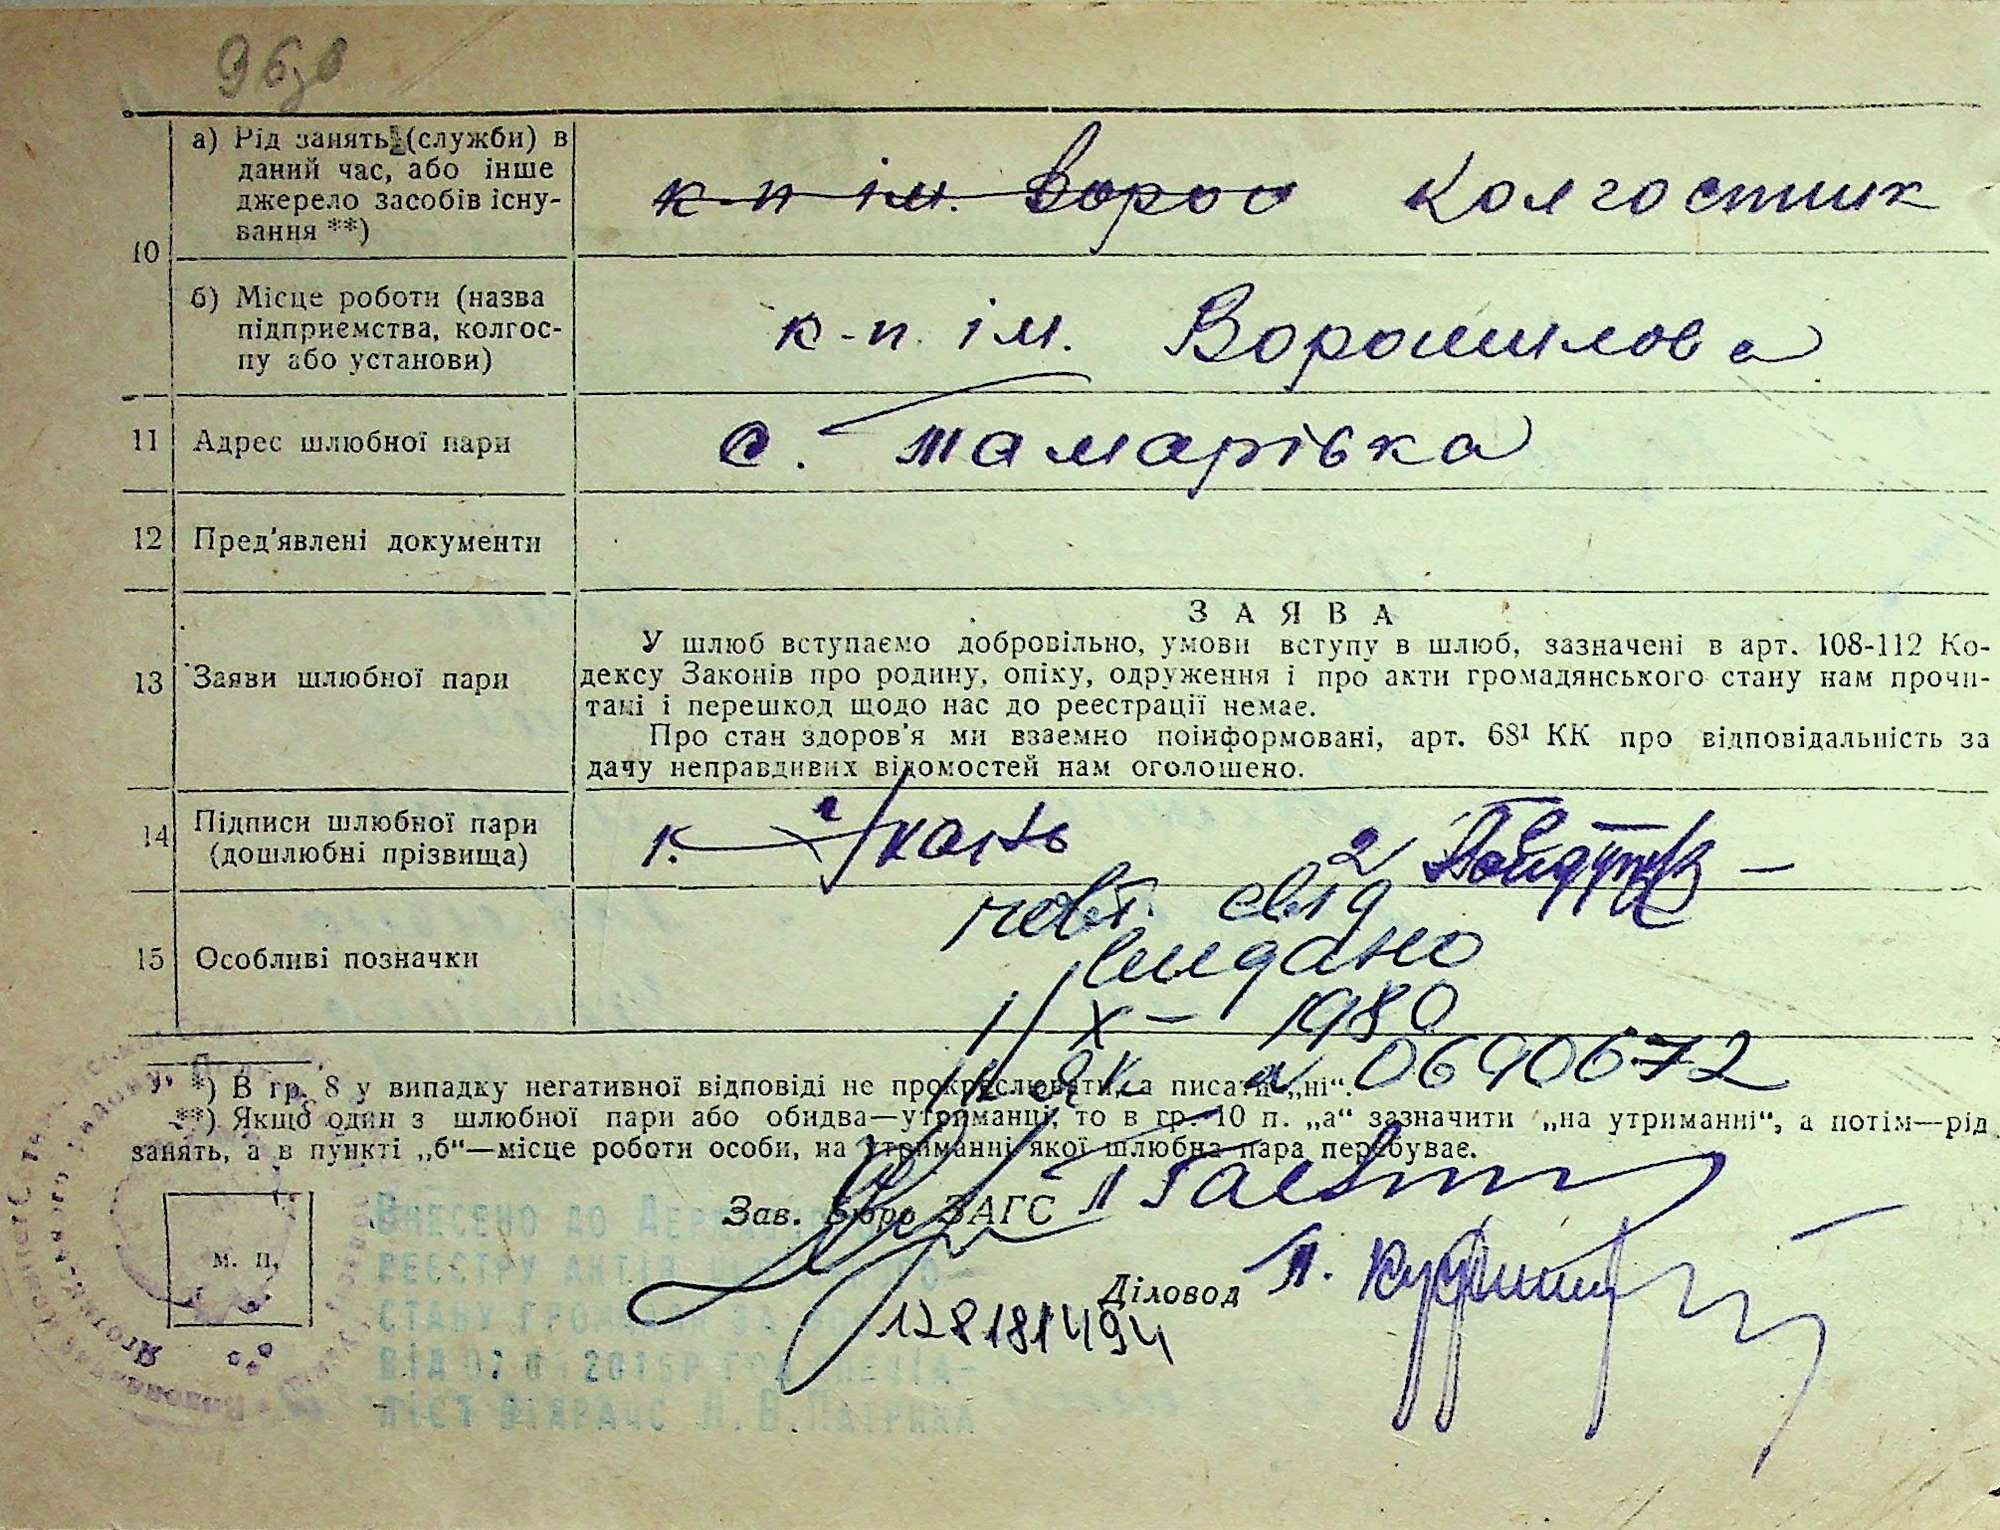 а) Рід занять (служби) в
даний час, або інше
джерело засобів існу-
вання **)
к-п ім. Воро Колгостник
10
б) Місце роботи (назва
підприємства, колгос-
пу або установи)
к-п. ім. Ворошилова
11 Адрес шлюбної пари
с. Тамарівка
12 Пред'явлені документи
ЗАЯВА
13 Заяви шлюбної пари
У шлюб вступаємо добровільно, умови вступу в шлюб, зазначені в арт. 108-112 Ко-
дексу Законів про родину, опіку, одруження і про акти громадянського стану нам прочи-
тані і перешкод щодо нас до реестрації немає.
Про стан здоров'я ми взаемно поінформовані, арт. 68¹ КК про відповідальність за
дачу неправдивих відомостей нам оголошено.
14 Підписи шлюбної пари
(дошлюбні прізвища)
1. 2
15 Особливі позначки
повт. свід
видано
1/X - 1980
0690672
*) В гр. 8 у випадку негативної відповіді не прокреслювати, а писати „ні“.
**) Якщо один з шлюбної пари або обидва—утриманці, то в гр. 10 п. „а“ зазначити „на утриманні“, а потім—рід
занять, а в пункті „б“—місце роботи особи, на утриманні якої шлюбна пара перебуває.
Зав. Бюро ЗАГС
м. п.
Діловод
128181494
Внесено до
реєстру актів
стану громадян
від 07 2015р